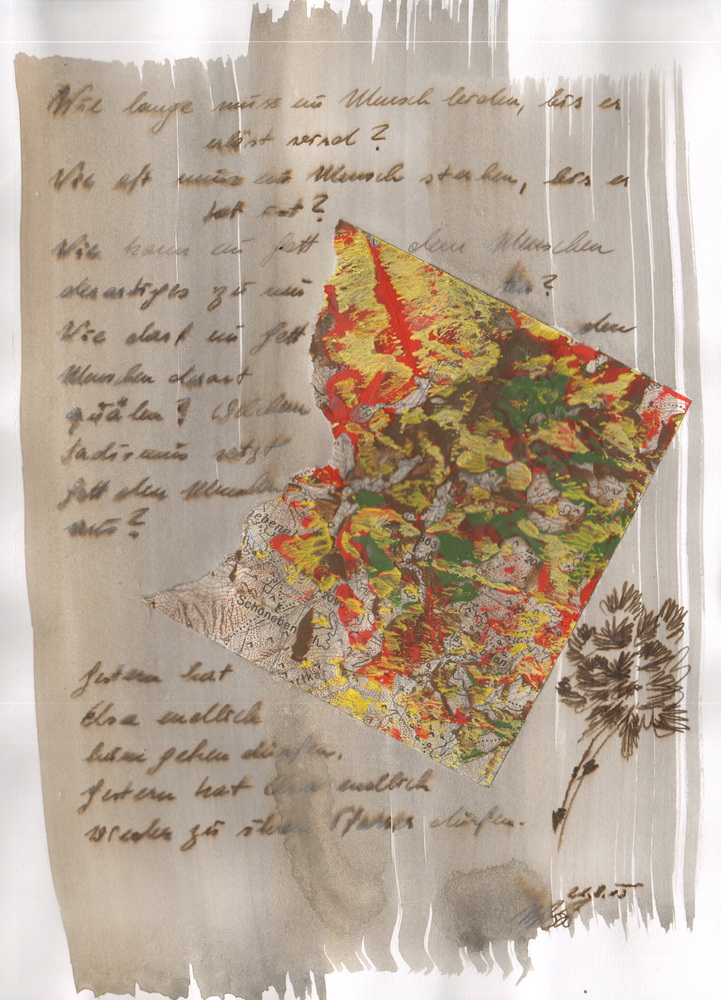 Wie lange muss ein Mensch leiden, bis er
erlöst wird?
Wie oft muss ein Mensch sterben, bis er
tot ist?
Wie kann ein Gott dem Menschen
derartiges zu tun?
Wie darf ein Gott den
Menschen derart
quälen? Welchem
Sadismus setzt
Gott den Menschen
aus?
Schöneben
Gestern hat
Elsa endlich
heim gehen dürfen.
Gestern hat Elsa endlich
wieder zu ihrem dürfen.